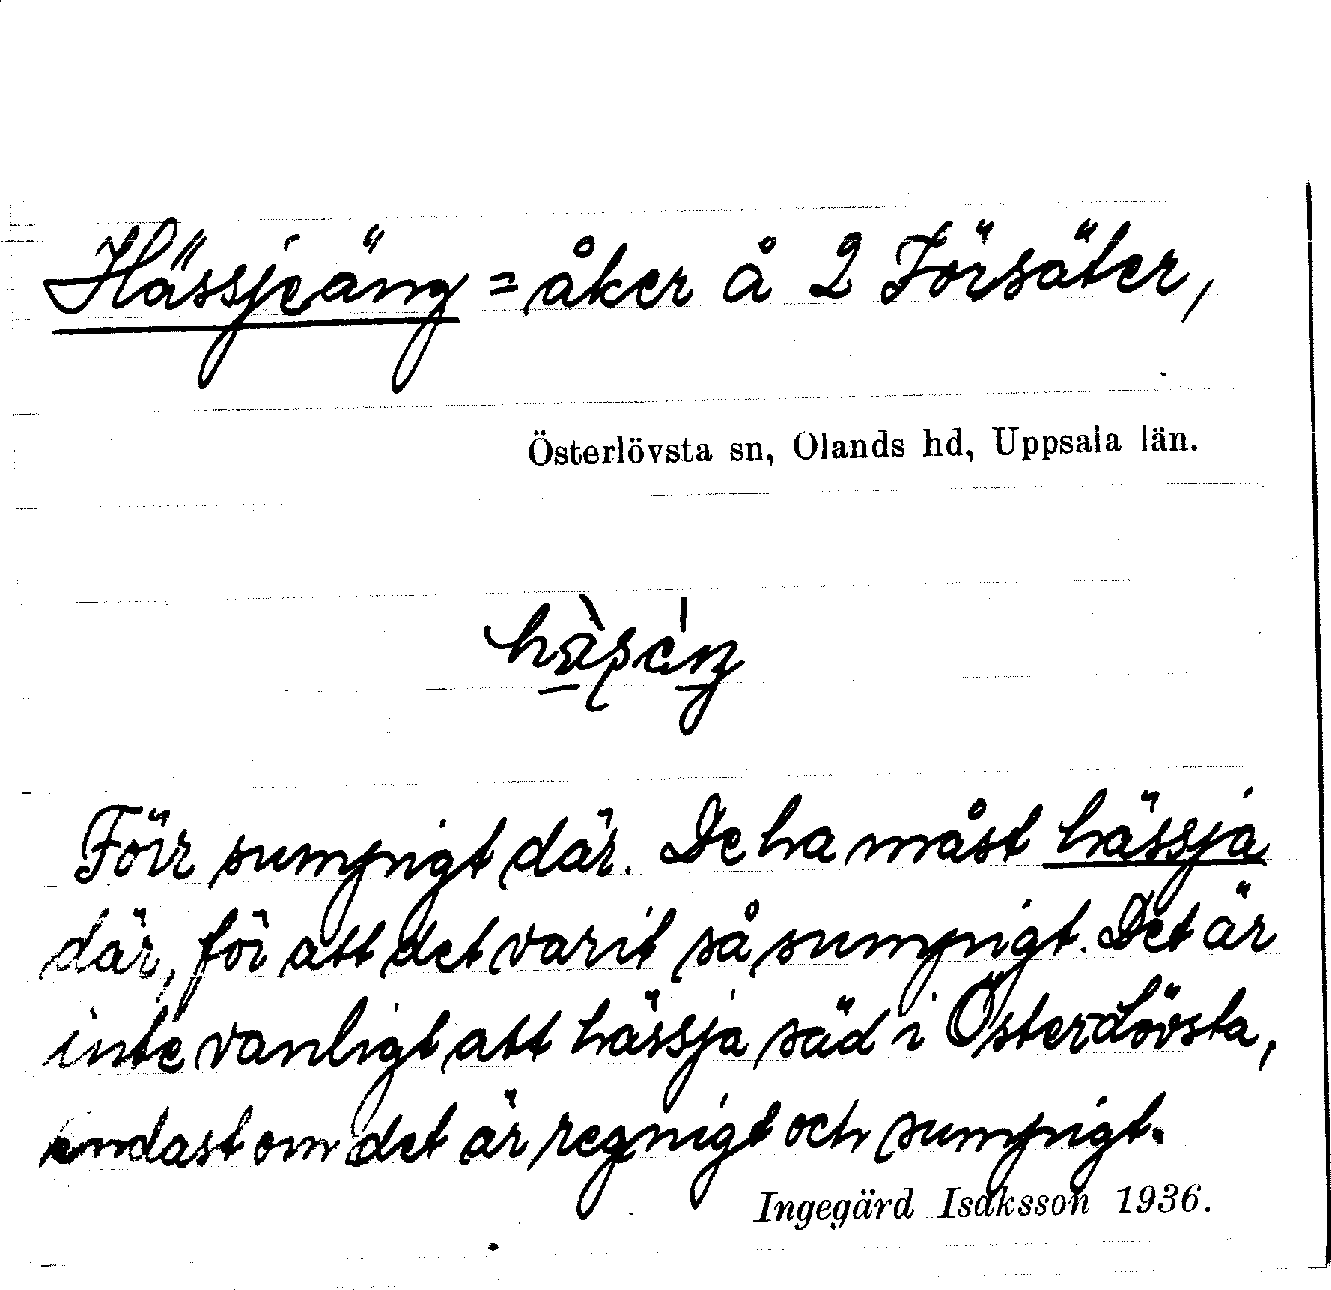 Hässjeäng = åker å 2 Försäter,
Österlövsta sn, Olands hd, Uppsala län.
Förr sumpigt där. De ha måst hässja
där, för att det varit så sumpigt. Det är
inte vanligt att hässja säd i Österlövsta,
endast om det är regnigt och sumpigt.
Ingegärd Isaksson 1936.